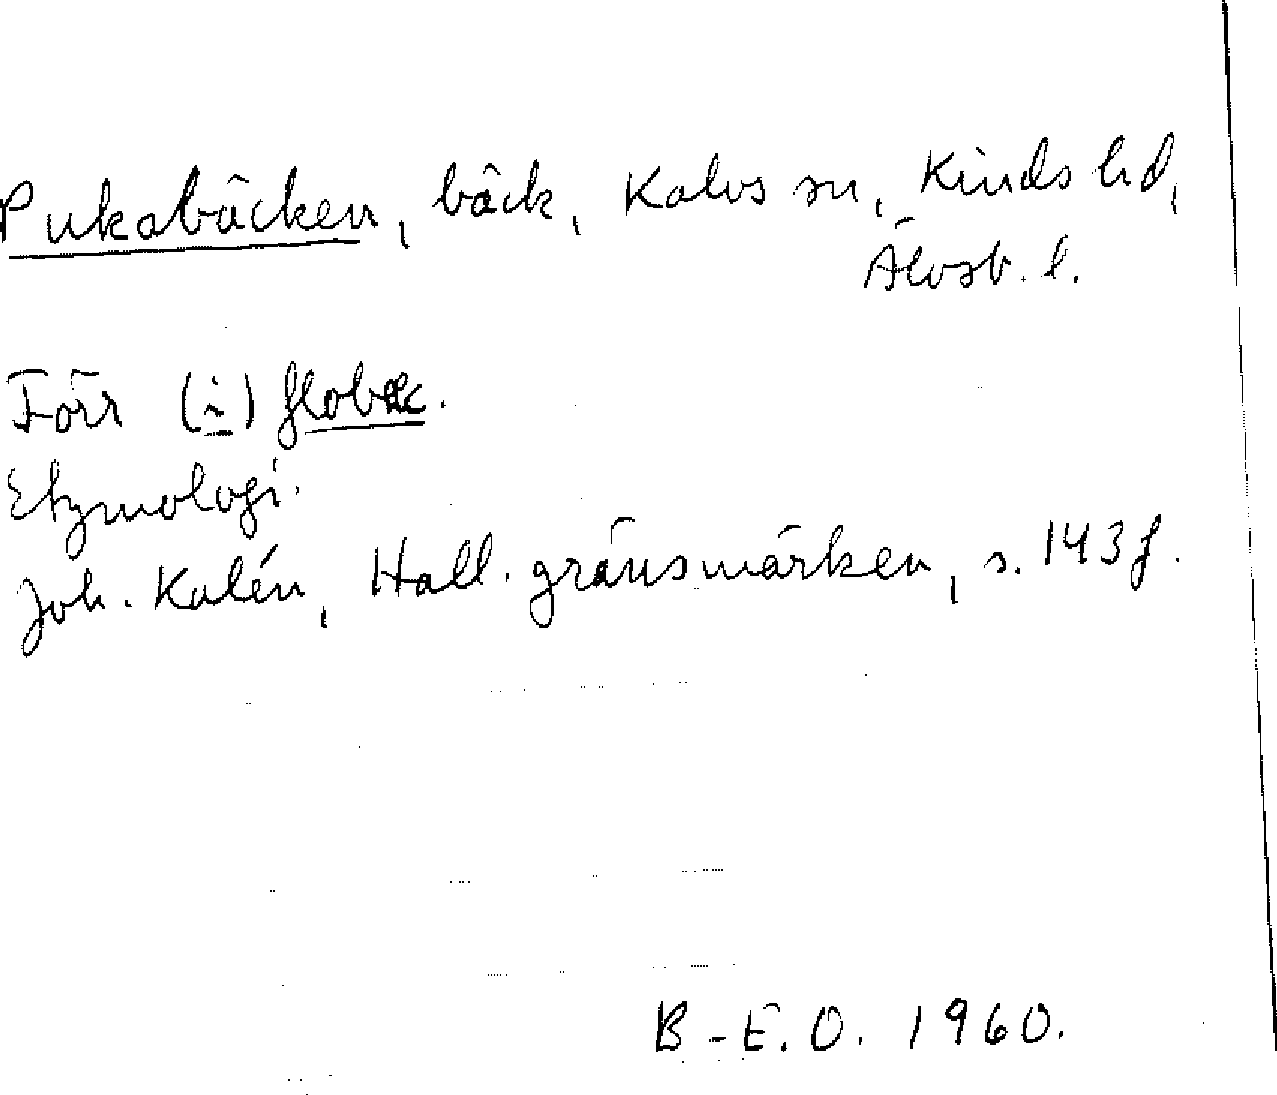 Pukabäcken, bäck, Kalvs sn, Kinds hd,
Älvsb. l.
Förr (i) flobæk.
Etymologi.
Joh. Kalén, Hall. gränsmärken, s. 143 f.
B-E.O. 1960.